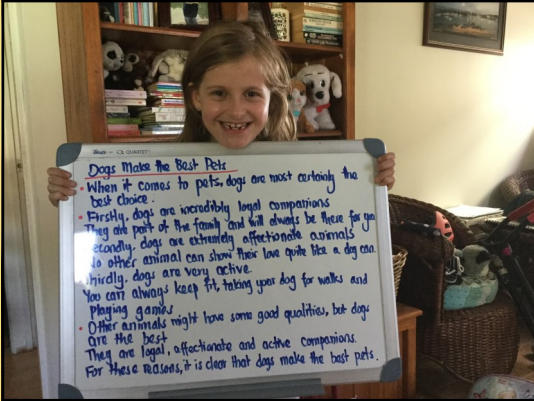 QUARTET
Dogs Make the Best Pets
• When it comes to pets, dogs are most certainly the
best choice.
• Firstly, dogs are incredibly loyal companions
They are part of the family and will always be there for you
Secondly, dogs are extremely affectionate animals
No other animal can show their love quite like a dog can.
Thirdly, dogs are very active.
You can always keep fit, taking your dog for walks and
playing games.
• Other animals might have some good qualities, but dogs
are the best
They are loyal, affectionate and active companions.
For these reasons, it is clear that dogs make the best pets.